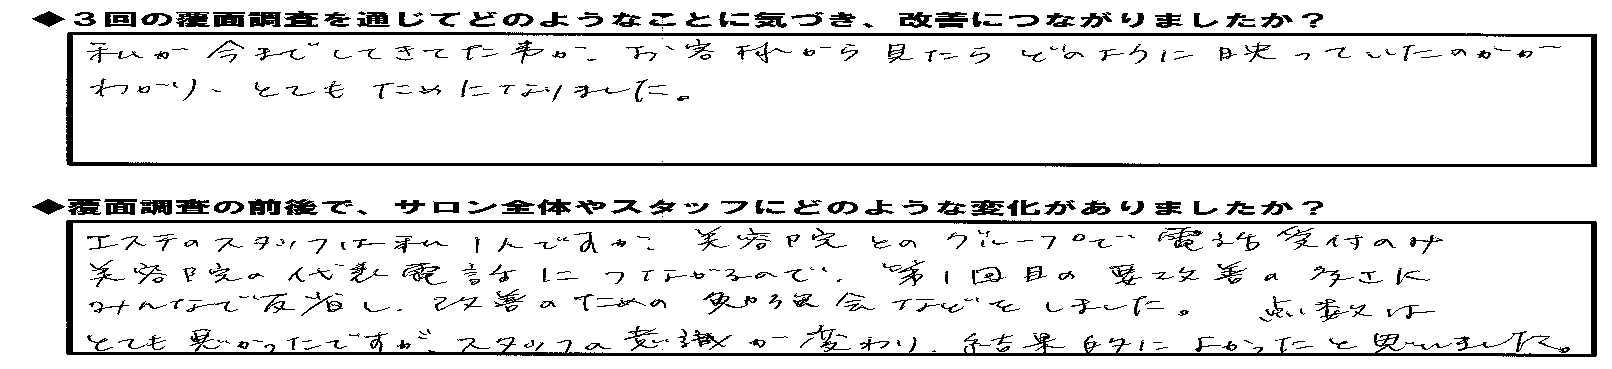 ◆3回の覆面調査を通じてどのようなことに気づき、改善につながりましたか？
私が今までしてきてた事が、お客様から見たらどのように映っていたのかが
わかり、とてもためになりました。
◆覆面調査の前後で、サロン全体やスタッフにどのような変化がありましたか？
エステのスタッフは私1人ですが、美容院とのグループで電話受付のみ
美容院の代表電話につながるので、第1回目の要改善の多さに
みんなで反省し、改善のための勉強会などをしました。 点数は
とても悪かったですが、スタッフの意識が変わり、結果的によかったと思いました。